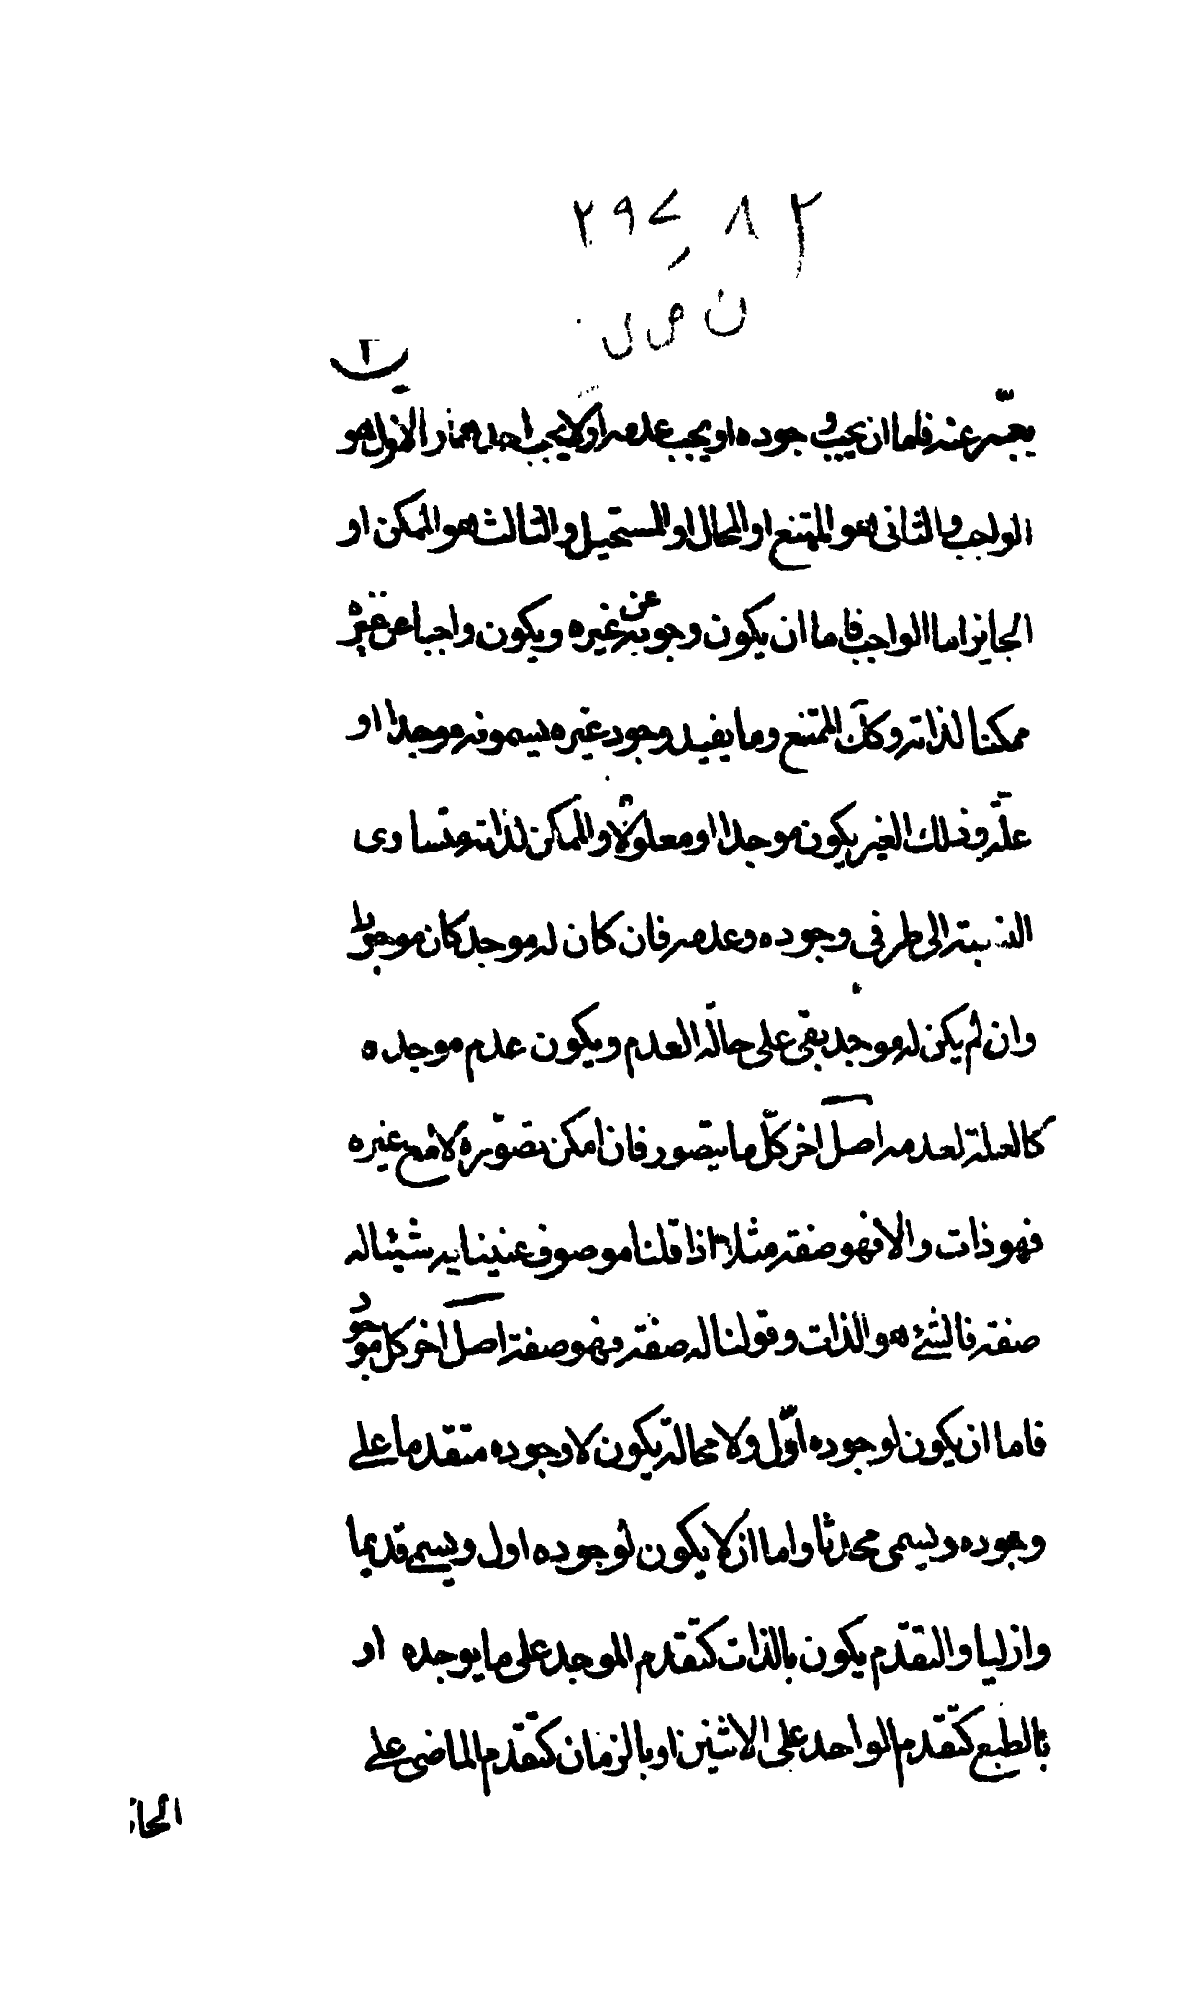 ٢ ٨ ٧ ٩ ٢
ن ص ل
٢
يعبّر عنه فاما ان يجب وجوده او يجب عدمه او لا يجب احدهما والاول هو
الواجب والثاني هو الممتنع او المحال او المستحيل والثالث هو الممكن او
الجايز اما الواجب فاما ان يكون وجوبه عن غيره ويكون واجبا عن غيره
ممكنا لذاته وكذلك الممتنع وما يفيد وجود غيره يسمونه موجدا او
علّة وذلك الغير يكون موجدا او معلولا والممكن لذاته متساوى
النسبة الى طرفي وجوده وعدمه فان كان له موجد كان موجودا
وان لم يكن له موجد بقى على حاله العدم ويكون عدم موجده
كالعلة لعدمه اصل اخر كلّ ما يتصور فان امكن تصوّره لا مع غيره
فهو ذات والا فهو صفة مثلا اذا قلنا موصوف عنينا به شيئا له
صفة فالشئ هو الذات وقولنا له صفة فهو صفة اصل اخر كل موجود
فاما ان يكون لوجوده اوّل ولا محالة يكون لا وجوده متقدما على
وجوده ويسمى محدثا واما ان لا يكون لوجوده اول ويسمى قديما
وازليا والتقدّم يكون بالذات كتقدم الموجد على ما يوجده او
بالطبع كتقدم الواحد على الاثنين او بالزمان كتقدّم الماضى على
الحا